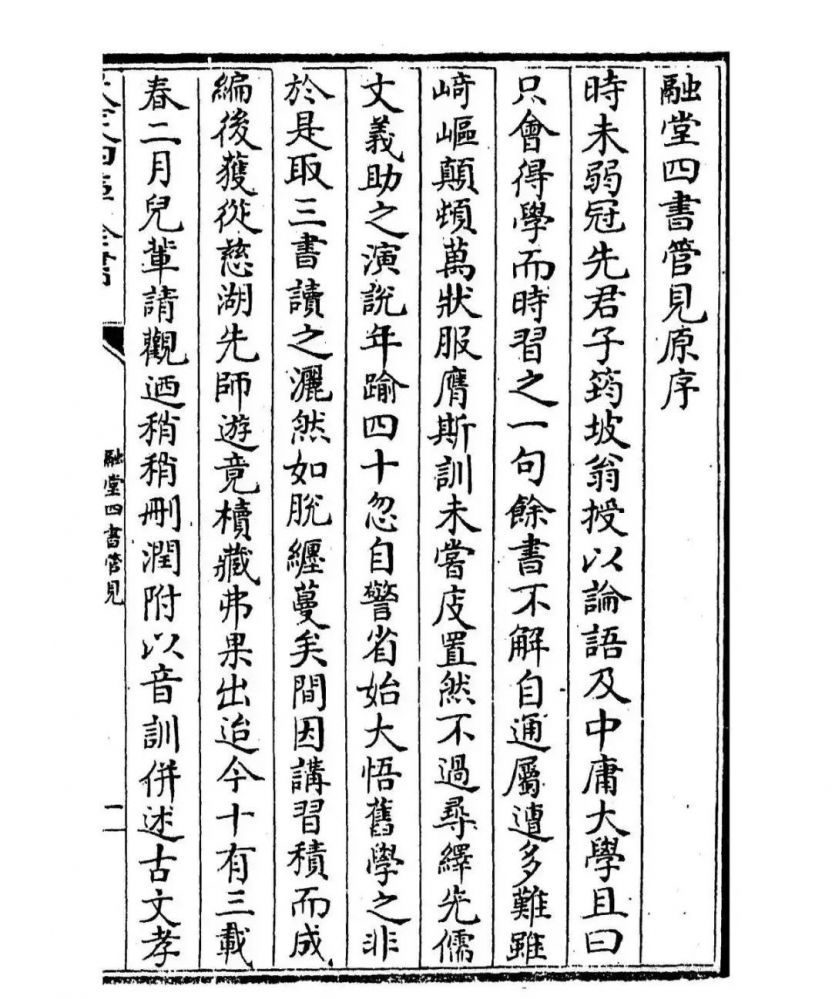 融堂四書管見原序
時未弱冠先君子筠坡翁授以論語及中庸大學且曰
只會得學而時習之一句餘書不解自通屬遭多難雖
崎嶇顛頓萬狀服膺斯訓未嘗庋置然不過尋繹先儒
文義助之演說年踰四十忽自警省始大悟舊學之非
於是取三書讀之灑然如脫纏蔓矣間因講習積而成
編後獲從慈湖先師遊竟櫝藏弗果出迨今十有三載
春二月兒輩請觀迺稍稍刪潤附以音訓併述古文孝
融堂四書管見
一